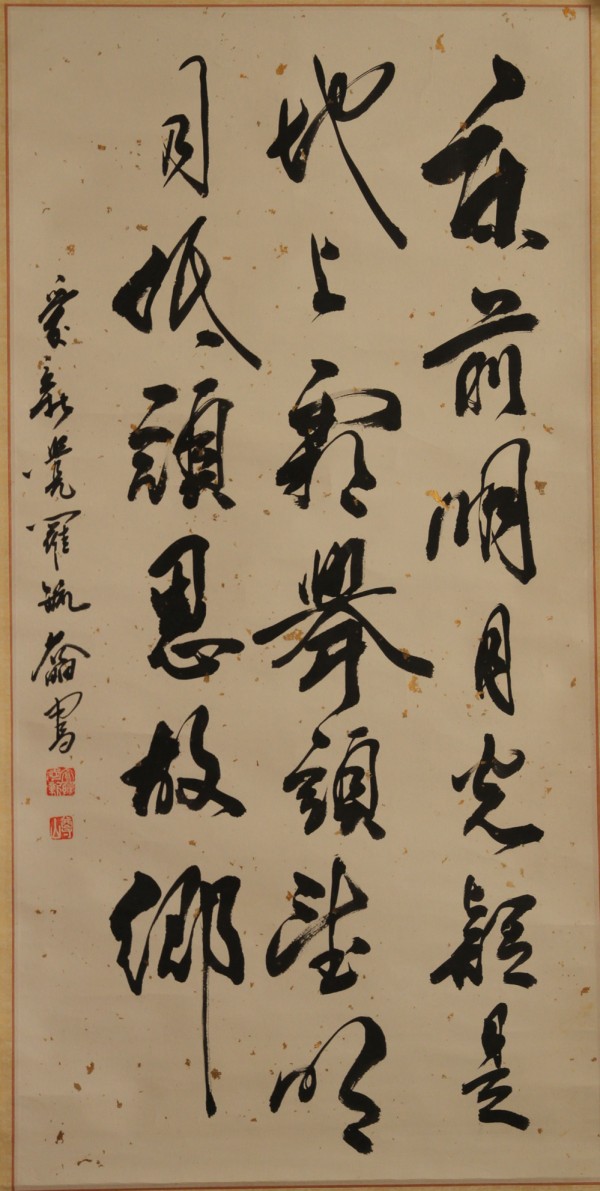 床前明月光疑是
地上霜舉頭望明
月低頭思故鄉
愛新覺羅毓書